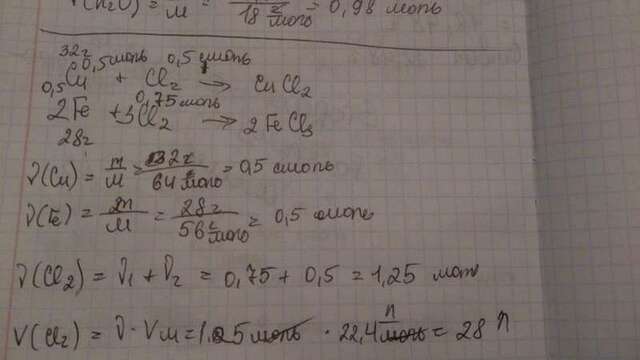 ν(H₂O) = m/M = /18 г/моль = 0,98 моль
32г 0,5моль 0,5 моль
0,5 Cu + Cl₂ → CuCl₂
0,75моль
2Fe + 3Cl₂ → 2FeCl₃
28г
ν(Cu) = m/M = 32г/64 г/моль = 0,5 моль
ν(Fe) = m/M = 28г/56 г/моль = 0,5 моль
ν(Cl₂) = ν₁ + ν₂ = 0,75 + 0,5 = 1,25 моль
V(Cl₂) = ν · Vм = 1,25 моль · 22,4 л/моль = 28 л